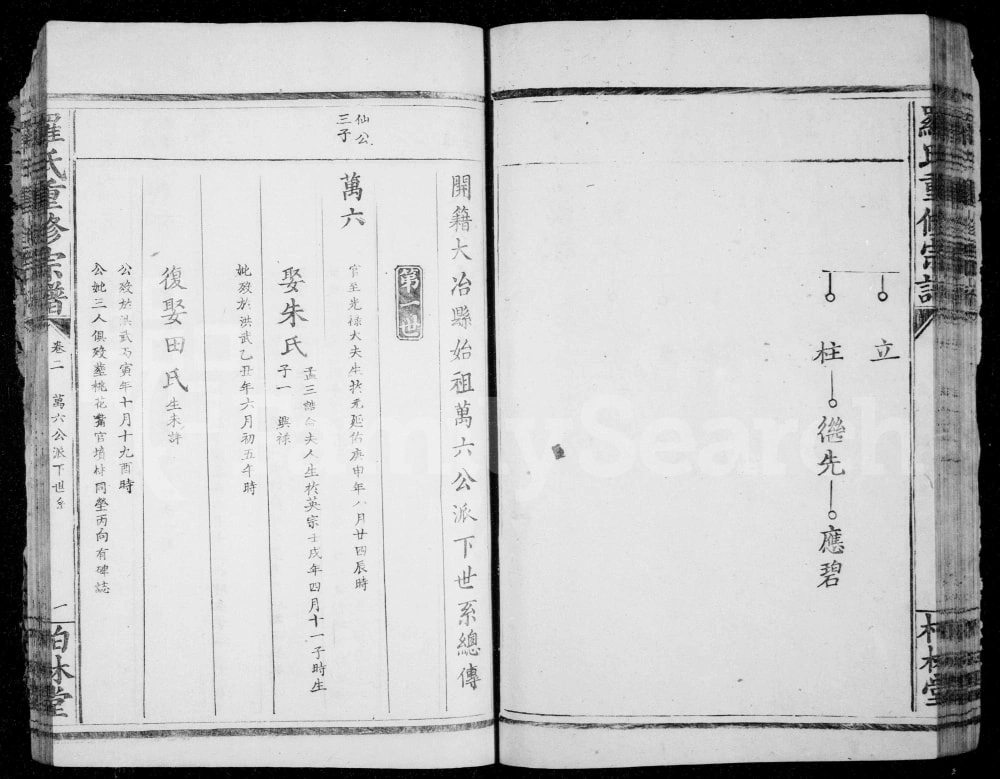 羅氏重修宗譜
柏林堂
立
柱 繼先 應碧
開籍大冶縣始祖萬六公派下世系總傳
第一世
仙公
三子
萬六
官至光祿大夫生於元延佑庚申年八月廿四辰時
娶朱氏
孟三誥命夫人生於英宗壬戌年四月十一子時生
子一 興祿
妣歿於洪武乙丑年六月初五午時
復娶田氏 生未詳
公歿於洪武丙寅年十月十九酉時
公妣三人俱歿墓桃花嘴官墳林同塋丙向有碑誌
羅氏重修宗譜
卷二
萬六公派下世系
一
柏林堂
FamilySearch